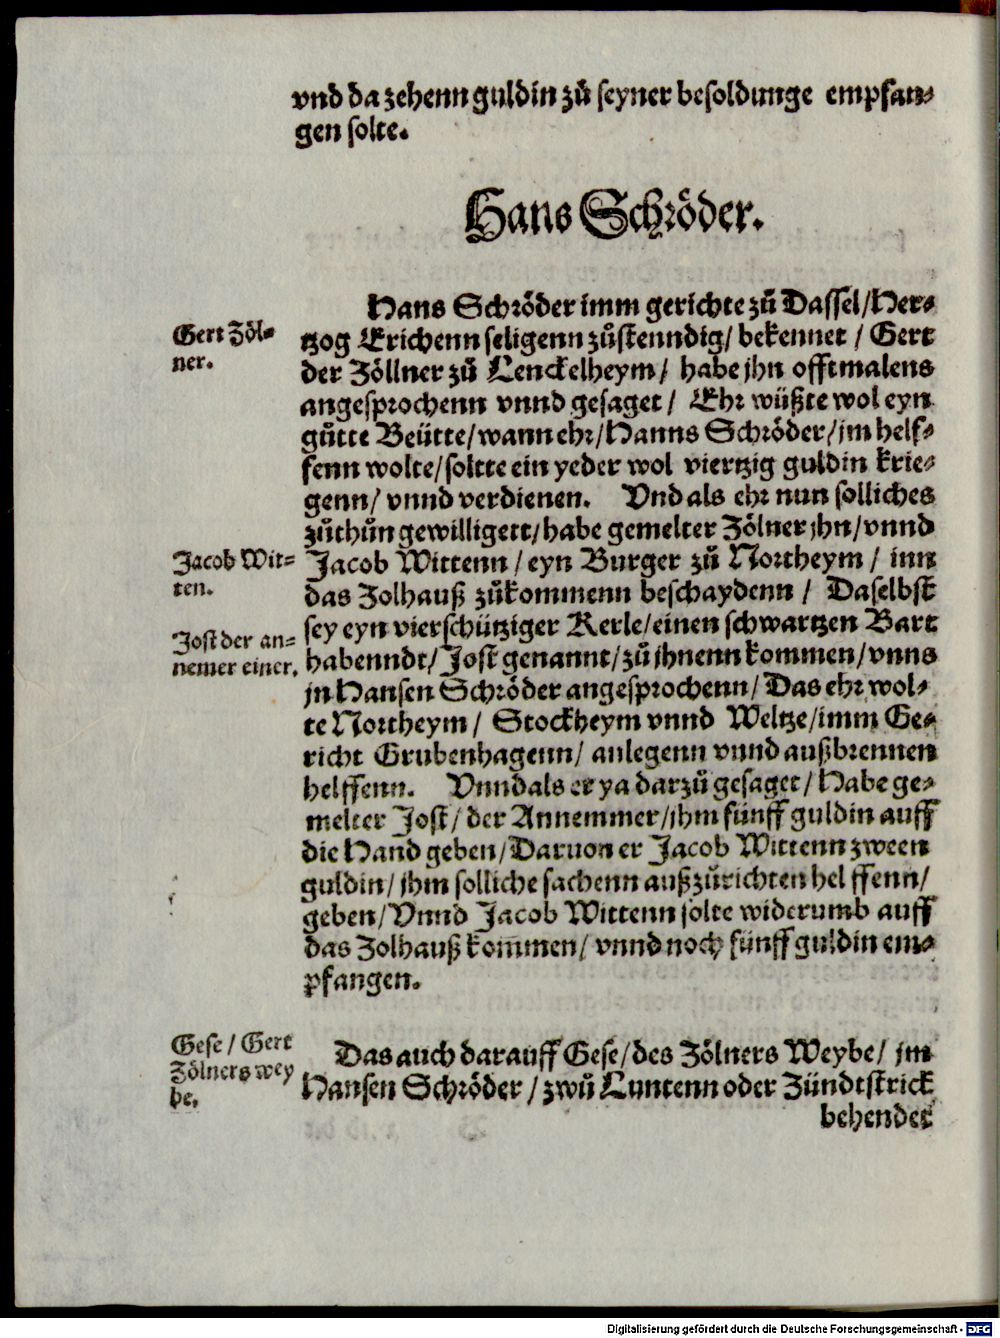 vnd da zehenn guldin zů seyner besoldunge empfan⸗
gen solte.
Hans Schröder.
Hans Schröder imm gerichte zů Dassel/Her⸗
tzog Erichenn seligenn zůstenndig/ bekennet / Gert
der Zöllner zů Lenckelheym/ habe jhn offtmalens
angesprochenn vnnd gesaget / Ehr wüßte wol eyn
gůtte Beütte/wann ehr/Hanns Schröder/jm helf⸗
fenn wolte/soltte ein yeder wol viertzig guldin krie⸗
genn/ vnnd verdienen. Vnd als ehr nun solliches
zůthůn gewilligett/habe gemelter Zölner jhn/vnnd
Jacob Wittenn / eyn Burger zů Northeym / inn
das Zolhauß zůkommenn beschaydenn / Daselbst
sey eyn vierschütziger Kerle/einen schwartzen Bart
habenndt/Jost genannt/zů jhnenn kommen/vnns
jn Hansen Schröder angesprochenn/Das ehr wol⸗
te Northeym/ Stockheym vnnd Weltze/imm Ge⸗
richt Grubenhagenn/ anlegenn vnnd außbrennen
helffenn. Vnnd als er ya darzů gesaget/Habe ge⸗
melter Jost/der Annemmer/jhm fünff guldin auff
die Hand geben/Daruon er Jacob Wittenn zween
guldin/jhm solliche sachenn außzůrichten helffenn/
geben/Vnnd Jacob Wittenn solte widerumb auff
das Zolhauß kom̄en/ vnnd noch fünff guldin em⸗
pfangen.
Das auch darauff Gese/des Zölners Weybe/ jm
Hansen Schröder / zwů Luntenn oder Zündtstrick
behendet
Gert Zöl⸗
ner.
Jacob Wit⸗
ten.
Jost der an⸗
nemer einer.
Gese / Gert
Zölners wey
be.
Digitalisierung gefördert durch die Deutsche Forschungsgemeinschaft - DFG